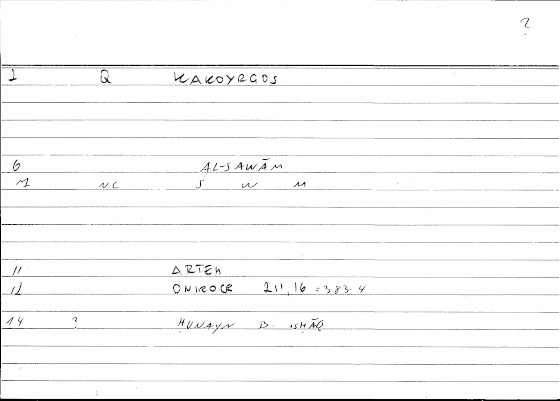 ?
1 Q KAKOYRGOS
6 AL-SAWĀM
M NC S W M
11 ARTEM
12 ONIROCR 211,16 = 383.4
14 ? ḤUNAYN B. ISḤĀQ